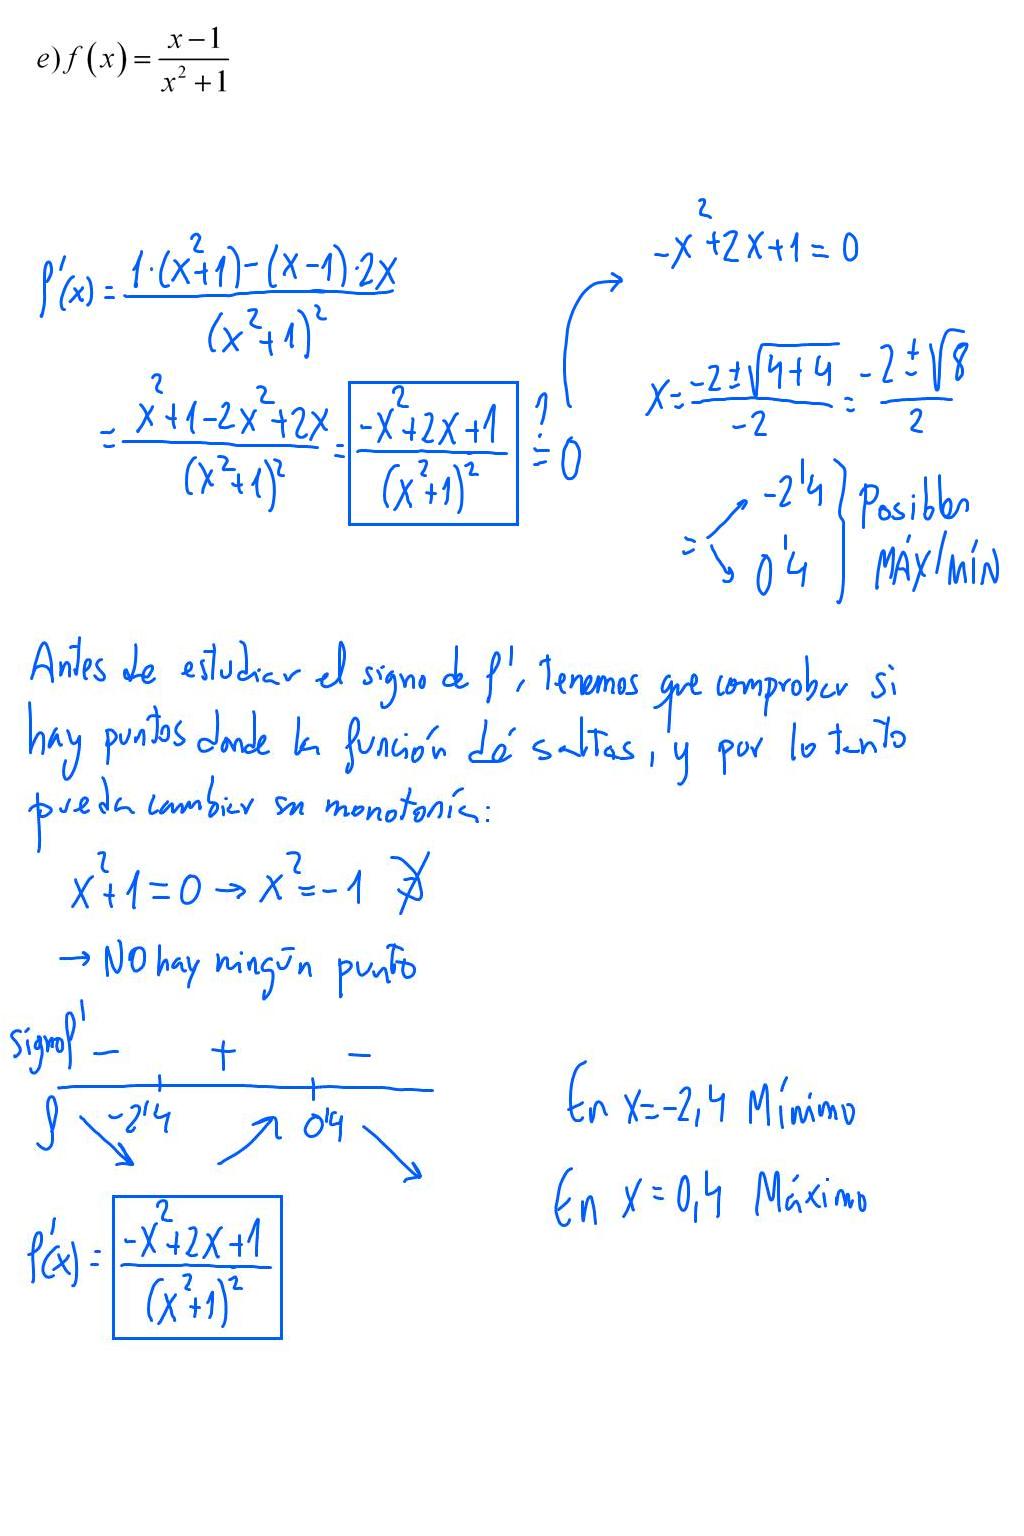 e) f(x) = (x−1)/(x²+1)
f'(x) = (1·(x²+1)−(x−1)·2x)/(x²+1)²
= (x²+1−2x²+2x)/(x²+1)² = (−x²+2x+1)/(x²+1)² =? 0
−x²+2x+1 = 0
x = (−2±√(4+4))/−2 = (−2±√8)/2
= −2'4
0'4
Posibles
MÁX/MÍN
Antes de estudiar el signo de f', tenemos que comprobar si
hay puntos donde la función dé saltas, y por lo tanto
pueda cambiar su monotonía:
x²+1=0 → x²=−1 ∄
→ NO hay ningún punto
signo f' − + −
f −2'4 0'4
f'(x) = (−x²+2x+1)/(x²+1)²
En x=−2,4 Mínimo
En x=0,4 Máximo